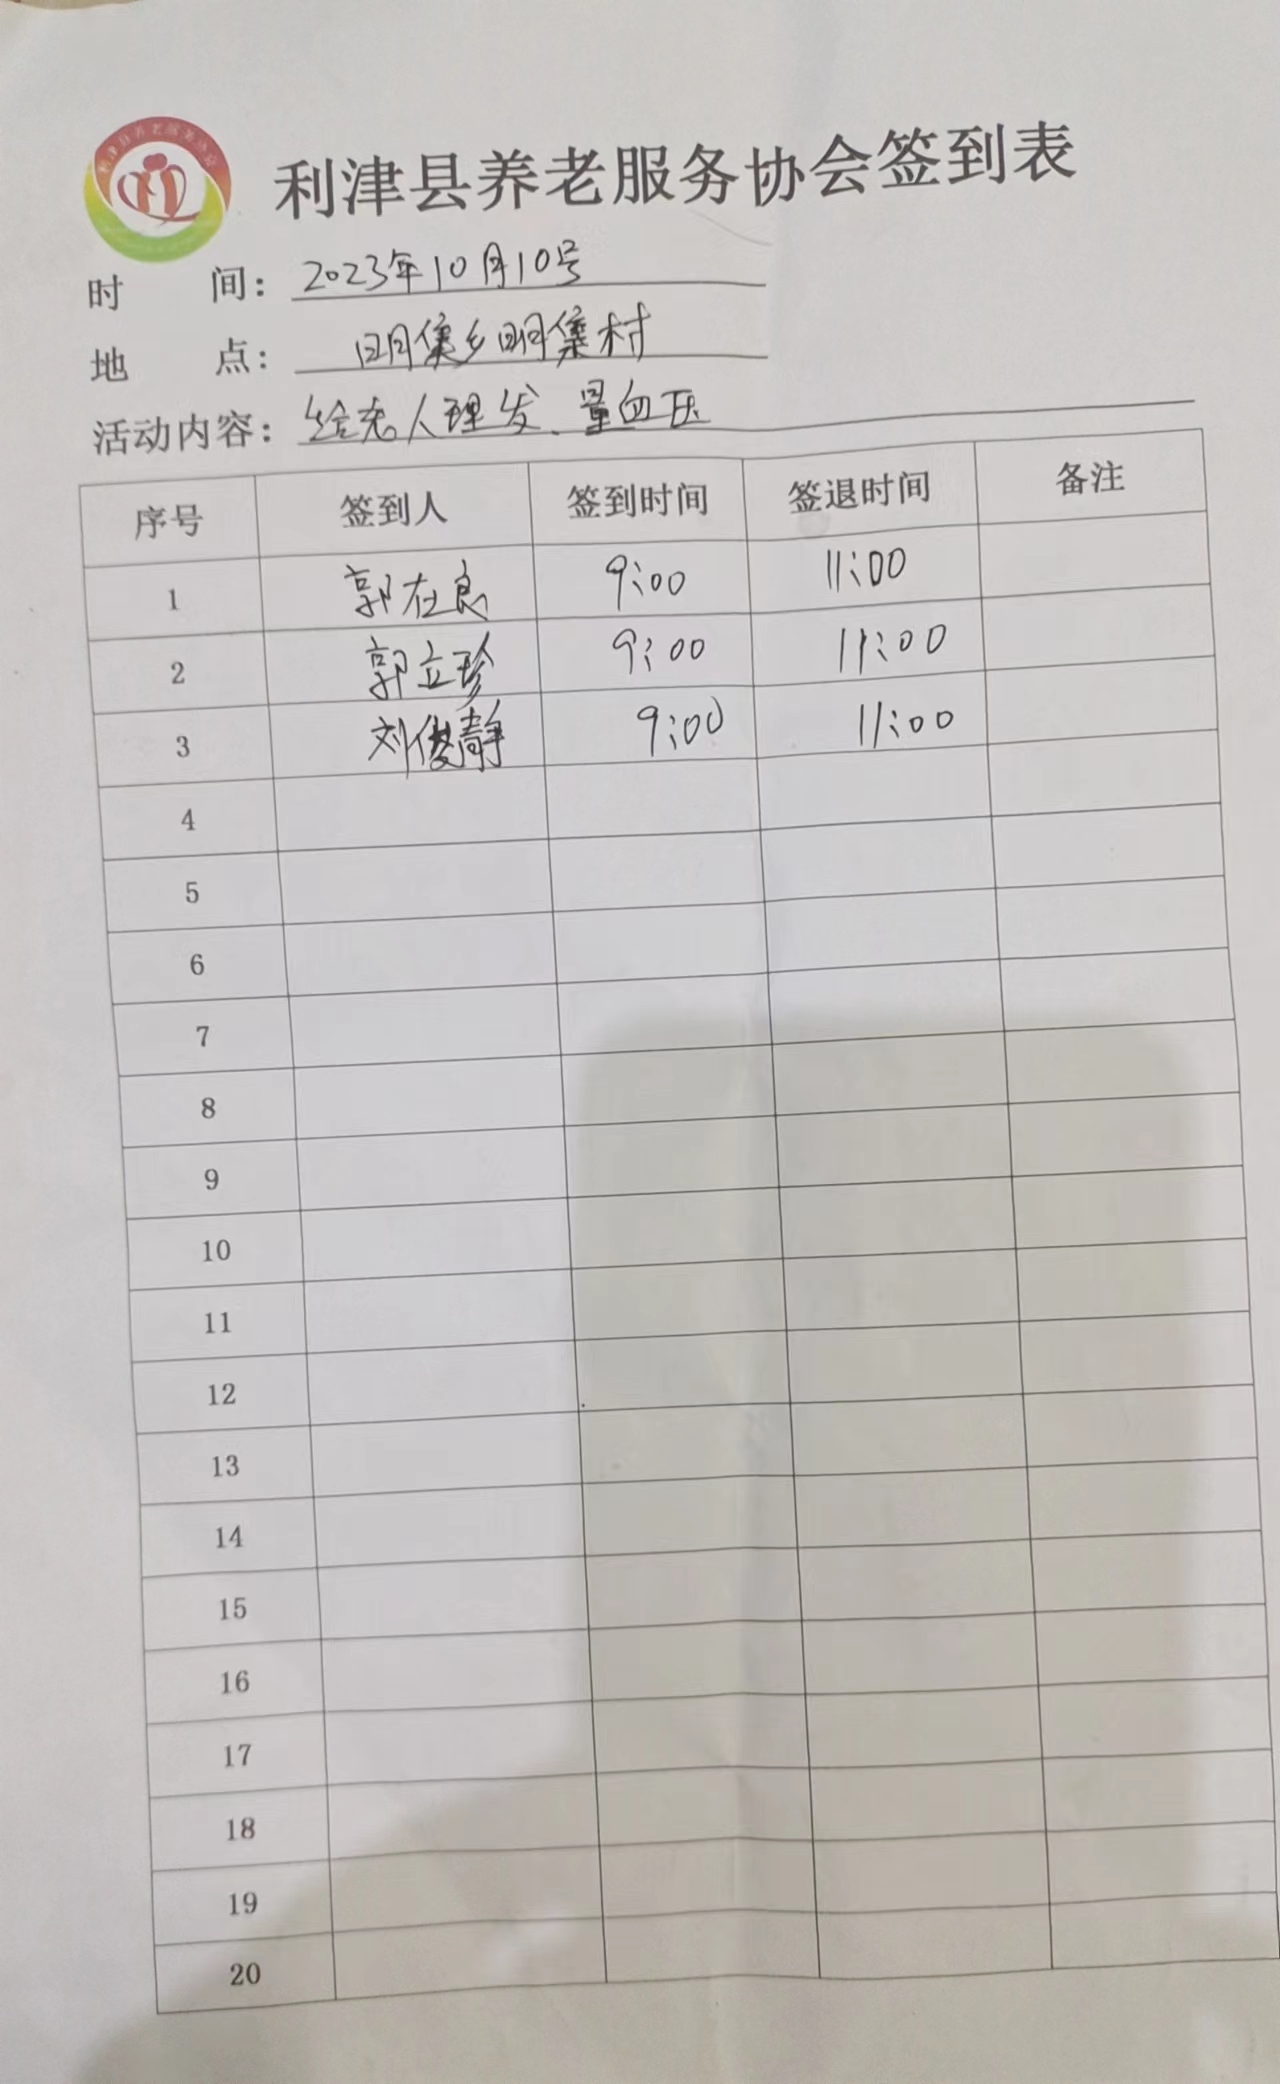 利津县养老服务协会
利津县养老服务协会签到表
时 间：2023年10月10号
地 点：明集乡明集村
活动内容：给老人理发、量血压
序号 签到人 签到时间 签退时间 备注
1 郭在良 9:00 11:00
2 郭立珍 9:00 11:00
3 刘俊静 9:00 11:00
4
5
6
7
8
9
10
11
12
13
14
15
16
17
18
19
20